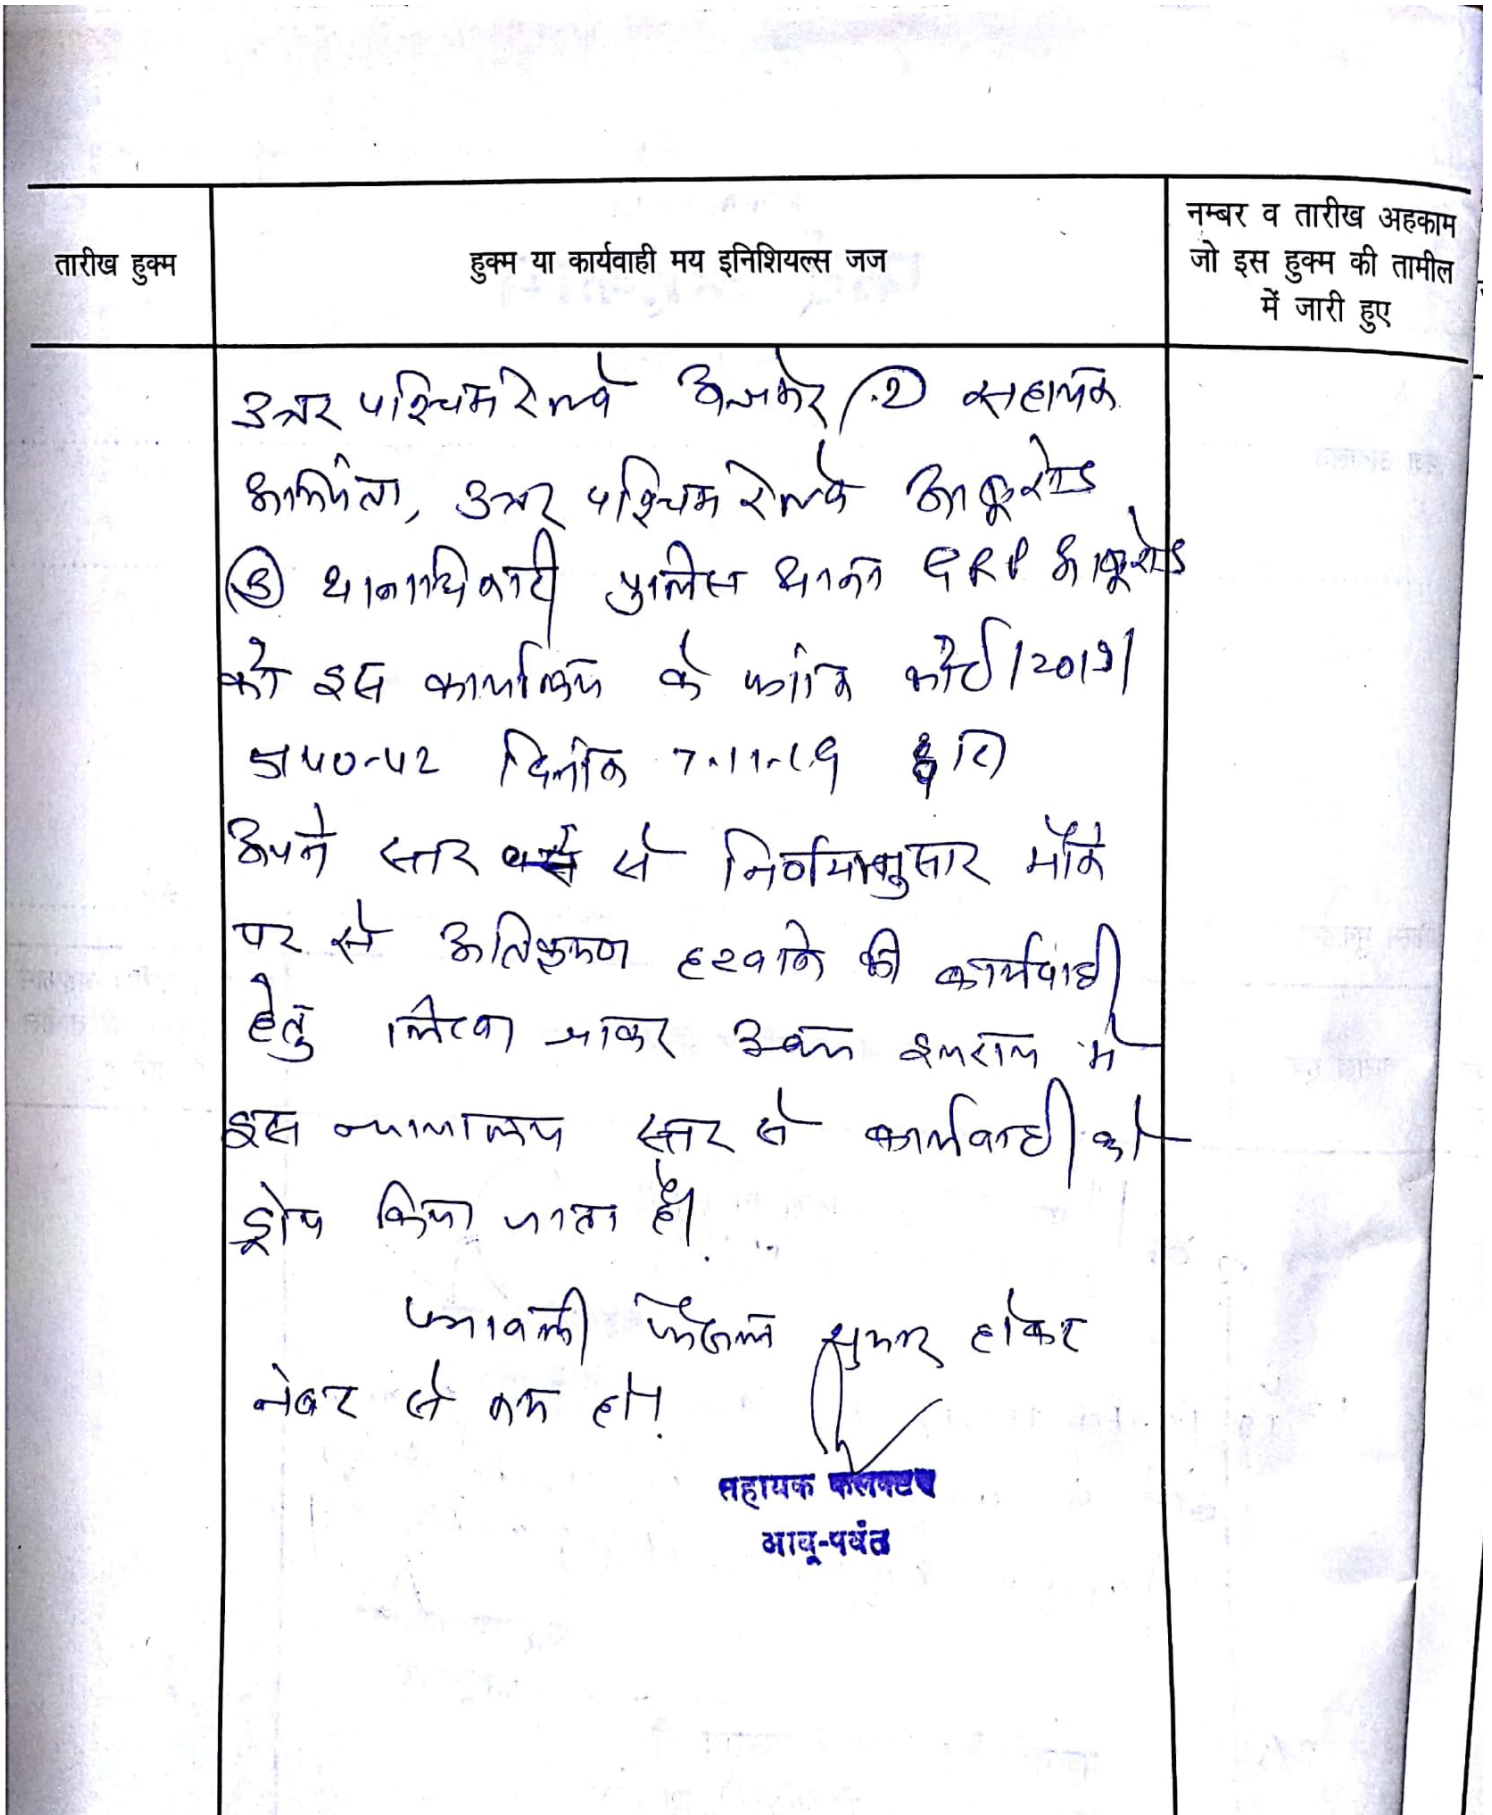 तारीख हुक्म
हुक्म या कार्यवाही मय इनिशियल्स जज
नम्बर व तारीख अहकाम
जो इस हुक्म की तामील
में जारी हुए
उत्तर पश्चिम रेल्वे अजमेर (2) सहायक
अभियंता, उत्तर पश्चिम रेल्वे आबूरोड
(3) थानाधिकारी पुलिस थाना GRP आबूरोड
को इस कार्यालय के क्रमांक कोर्ट/2019/
दिनांक 7.11.19 द्वारा
अपने स्तर से निर्णयानुसार मौके
पर से अतिक्रमण हटवाने की कार्यवाही
हेतु लिखा जाकर उक्त इजराय में
इस न्यायालय स्तर से कार्यवाही को
ड्रोप किया जाता है।
पत्रावली फैसल शुमार होकर
नंबर से कम हो।
सहायक कलक्टर
आबू-पर्वत